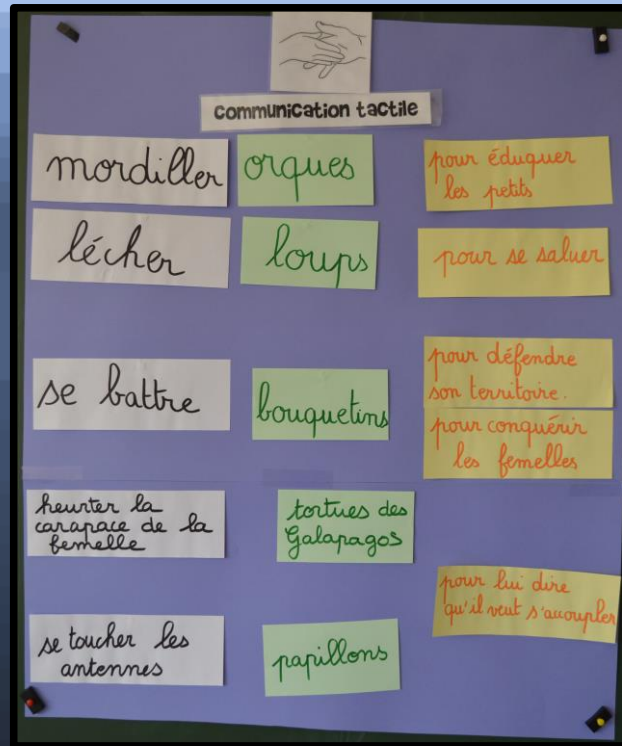 communication tactile
mordiller
orques
pour éduquer
les petits
lécher
loups
pour se saluer
se battre
bouquetins
pour défendre
son territoire.
pour conquérir
les femelles
heurter la
carapace de la
femelle
tortues des
Galapagos
pour lui dire
qu'il veut s'accoupler
se toucher les
antennes
papillons